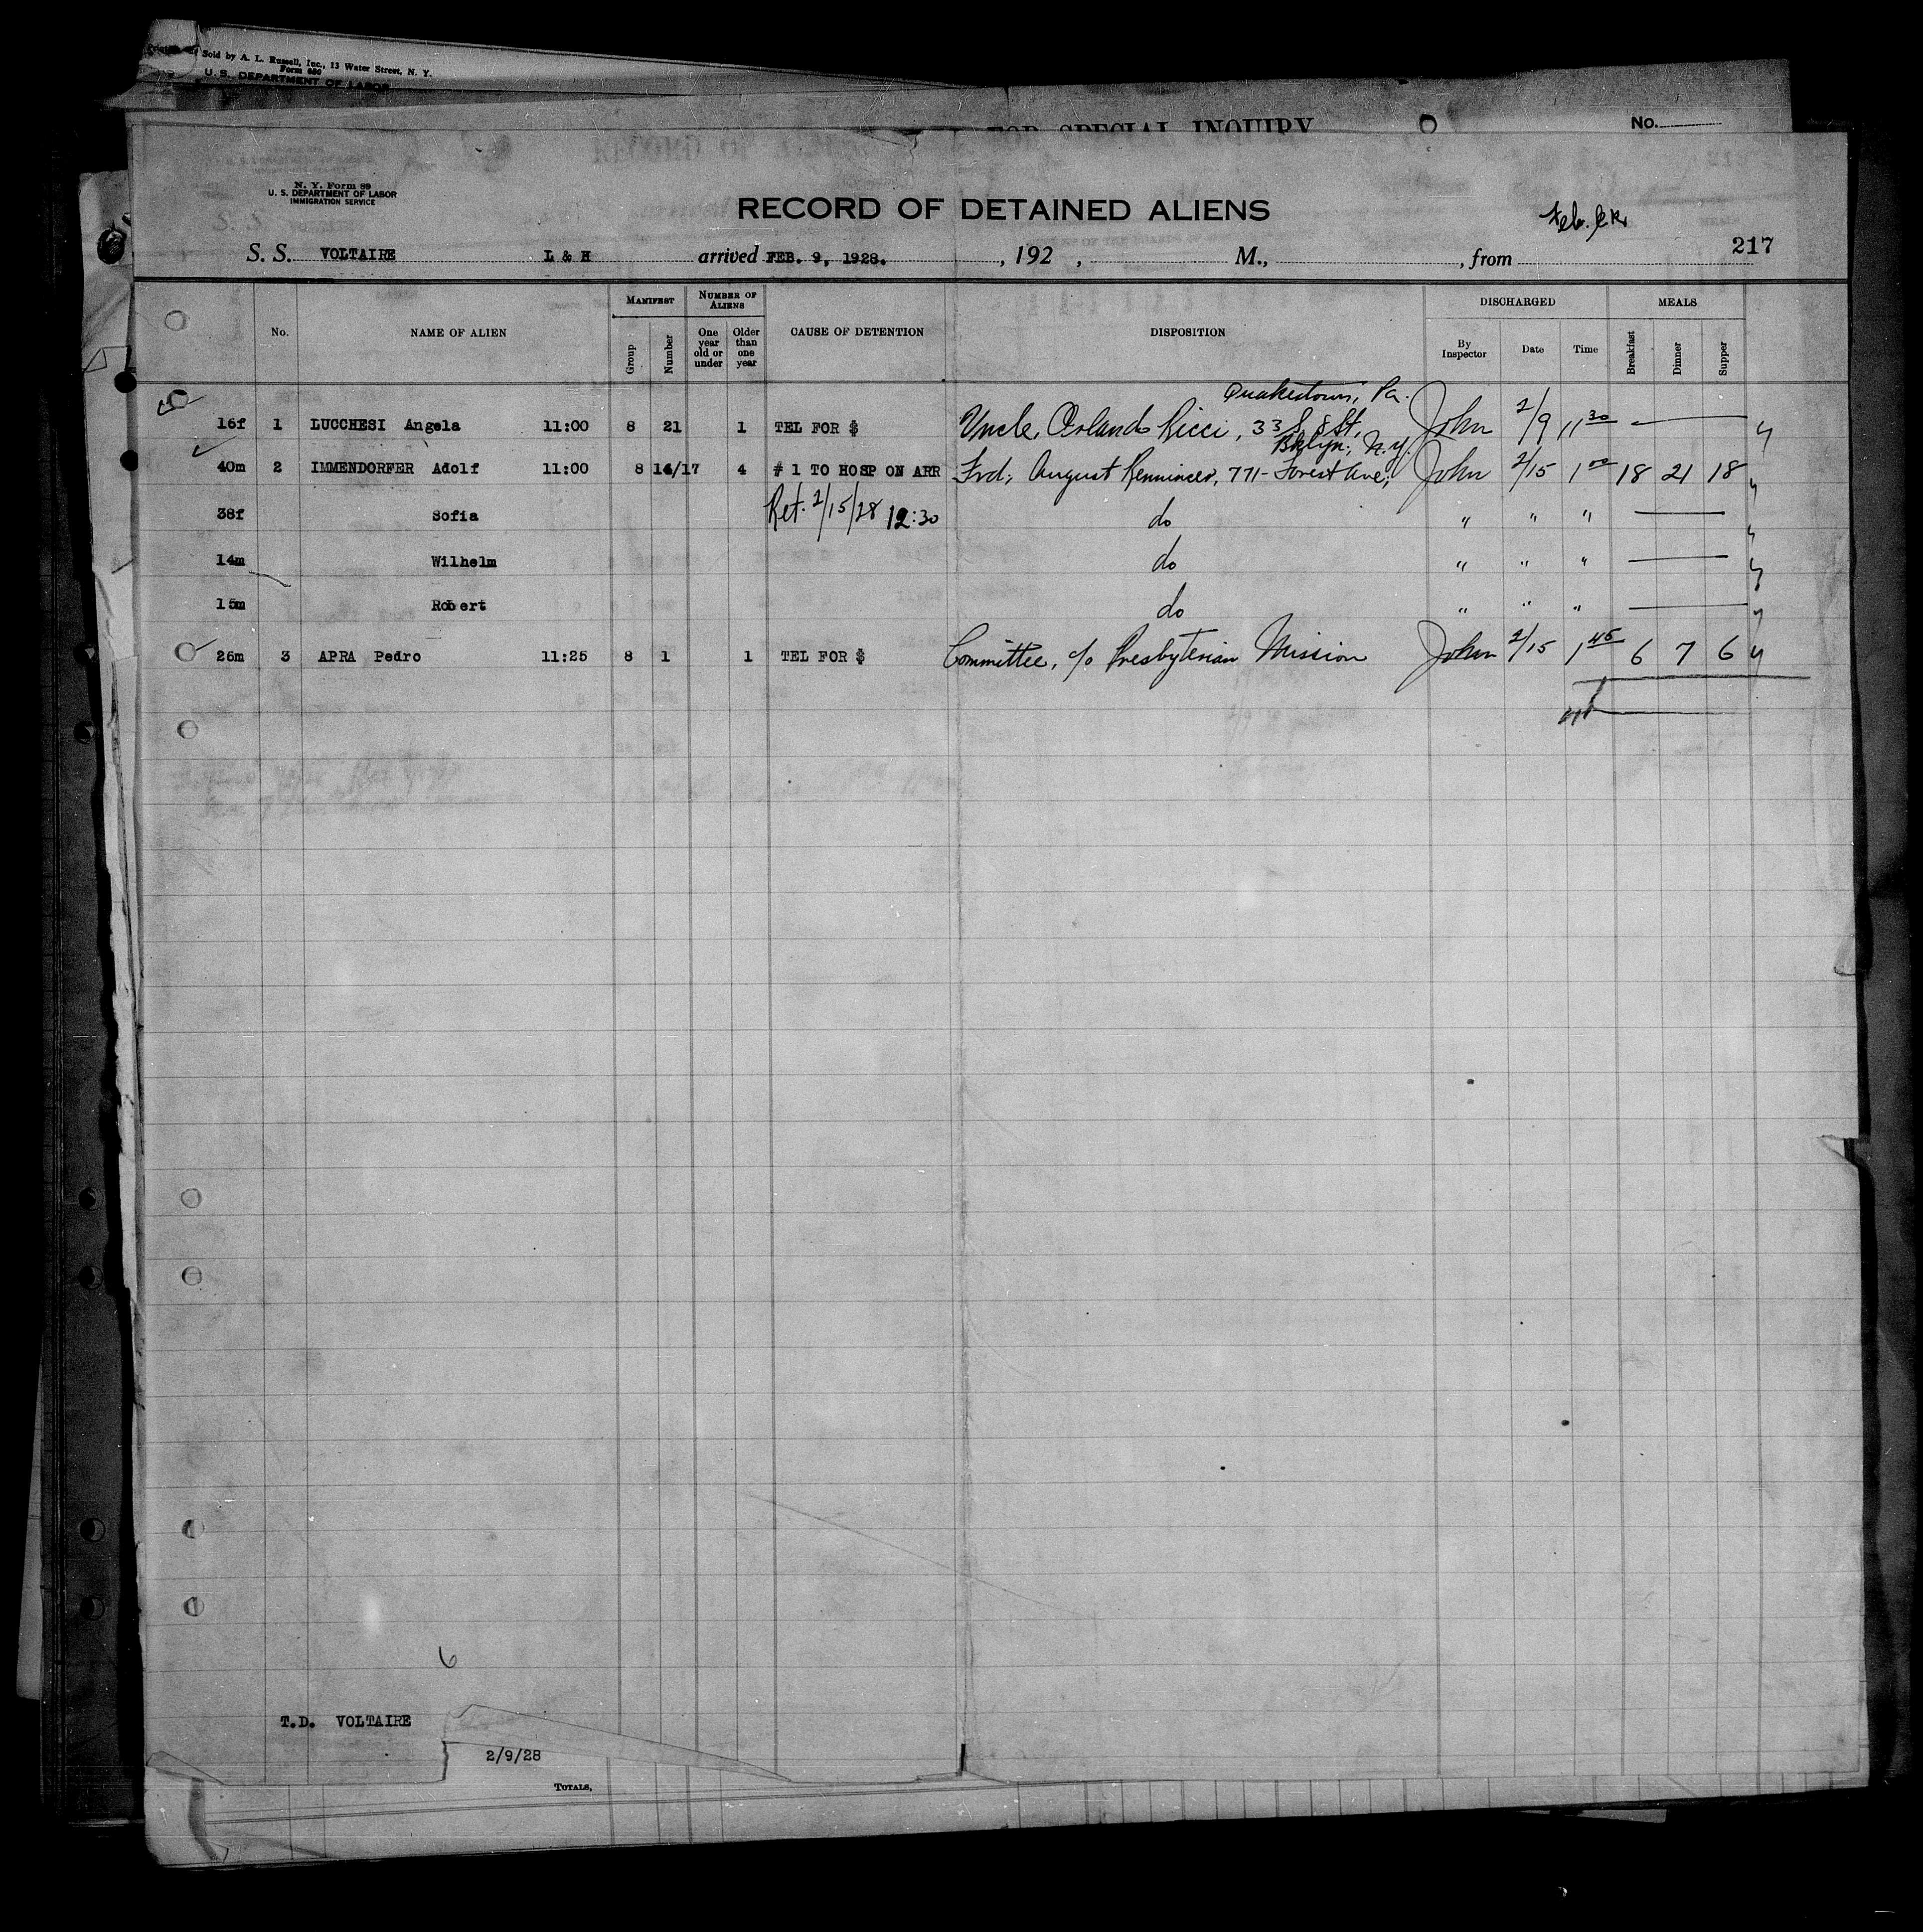 Sold by A. L. Russell, Inc., 13 Water Street, N. Y.
Form 680
U. S. DEPARTMENT OF LABOR
FOR SPECIAL INQUIRY
No.
N. Y. Form 89
U. S. DEPARTMENT OF LABOR
IMMIGRATION SERVICE
RECORD OF DETAINED ALIENS
217
S. S. VOLTAIRE L & H arrived FEB. 9, 1928. , 192 , M., , from
No. NAME OF ALIEN MANIFEST Group Number NUMBER OF ALIENS One year old or under Older than one year CAUSE OF DETENTION DISPOSITION DISCHARGED By Inspector Date Time MEALS Breakfast Dinner Supper
Quakertown, Pa.
16f 1 LUCCHESI Angela 11:00 8 21 1 TEL FOR $ Uncle, Orlando Ricci, 33 S. 8 St, John 2/9 11 30
Bklyn, N.Y.
40m 2 IMMENDORFER Adolf 11:00 8 14/17 4 # 1 TO HOSP ON ARR Frd, August 771- Forest Ave, John 2/15 1 00 18 21 18
38f Sofia Ret. 2/15/28 12:30 do " " "
14m Wilhelm do " " "
15m Robert do " " "
26m 3 APRA Pedro 11:25 8 1 1 TEL FOR $ Committee, c/o Presbyterian Mission John 2/15 1 45 6 7 6
6
T.D. VOLTAIRE
2/9/28
TOTALS,